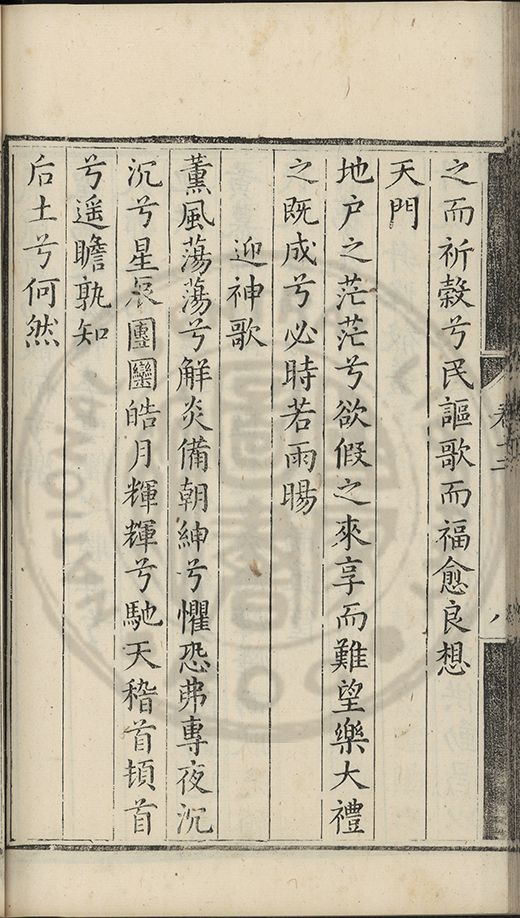 卷十二
八
之而祈穀兮民謳歌而福愈良想
天門
地户之茫茫兮欲假之來享而難望樂大禮
之既成兮必時若雨暘
迎神歌
薰風蕩蕩兮解炎備朝紳兮懼恐弗專夜沉
沉兮星辰圞皓月輝輝兮馳天稽首頓首
兮遥瞻孰知
后土兮何然